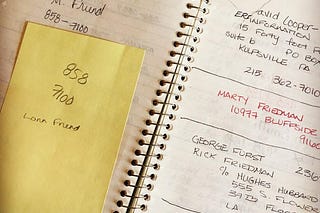 M. Friend
858-7100
858
7100
Lann Friend
David Cooper-
INFORMATION
15 FORTY FOOT
SUITE 6 PO BOX
KULPSVILLE PA
215. 362-7010
MARTY FRIEDMAN
10977 BLUFFSIDE
9160
GEORGE FURST 236
RICK FRIEDMAN
% HUGHES HUBBARD
555 S. FLOWER
LA FLO